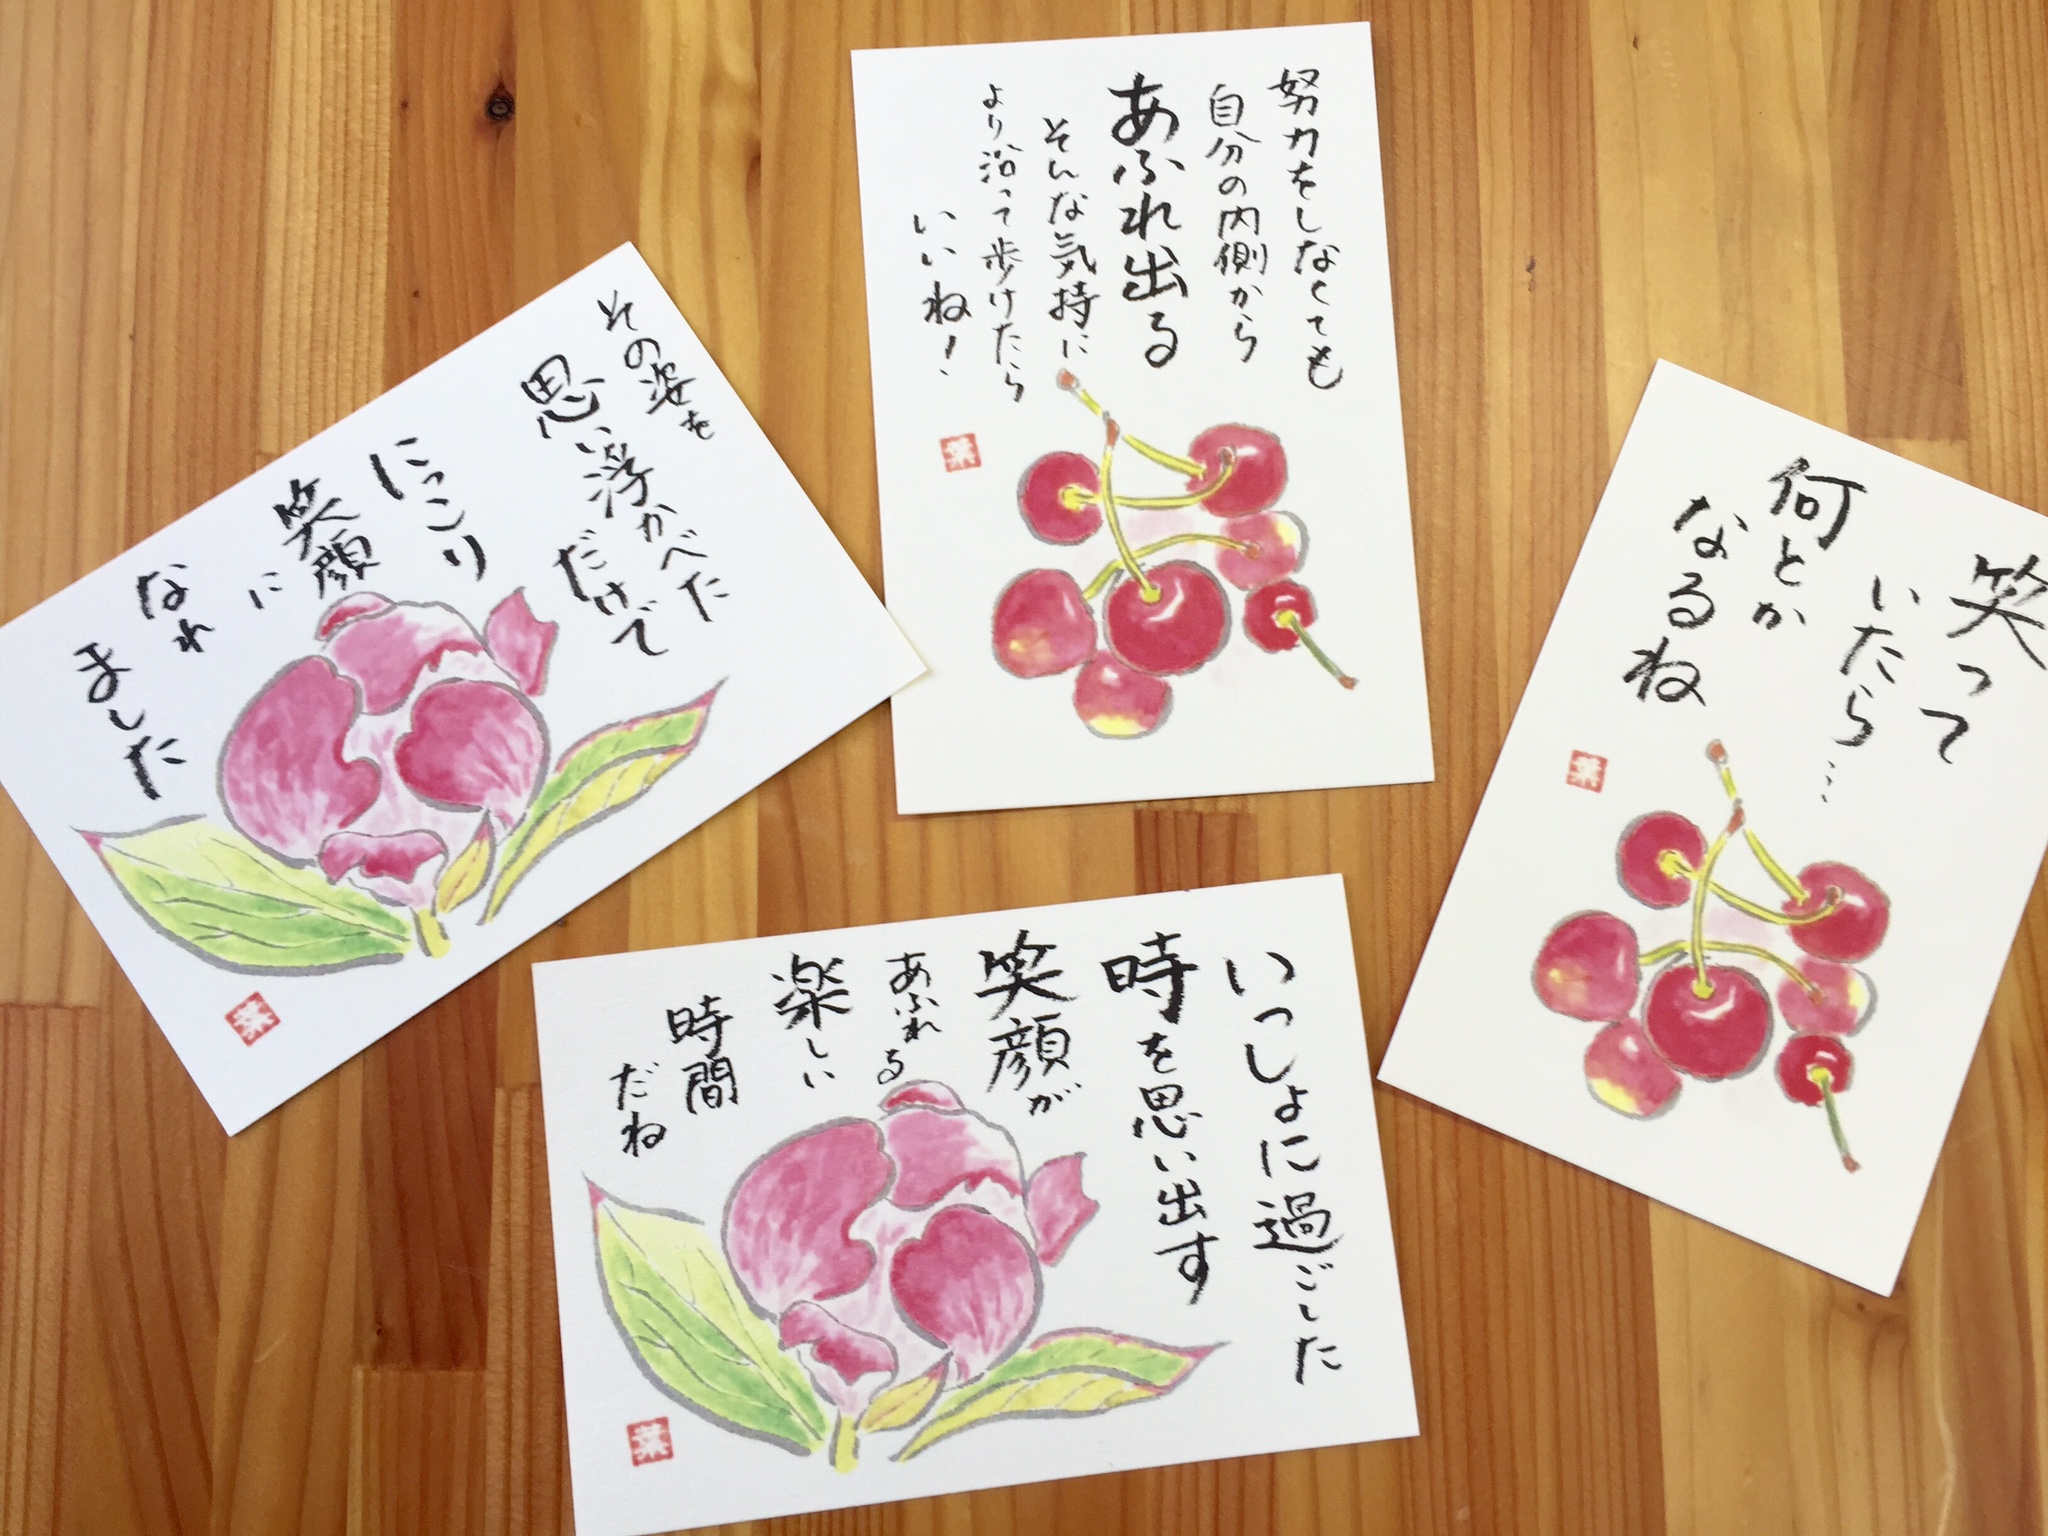 その姿を
思い浮かべた
だけで
にっこり
笑顔
に
なれ
ました
葉
努力をしなくても
自分の内側から
あふれ出る
そんな気持に
より沿って歩けたら
いいね!
葉
笑って
いたら…
何とか
なるね
葉
いっしょに過ごした
時を思い出す
笑顔が
あふれる
楽しい
時間
だね
葉